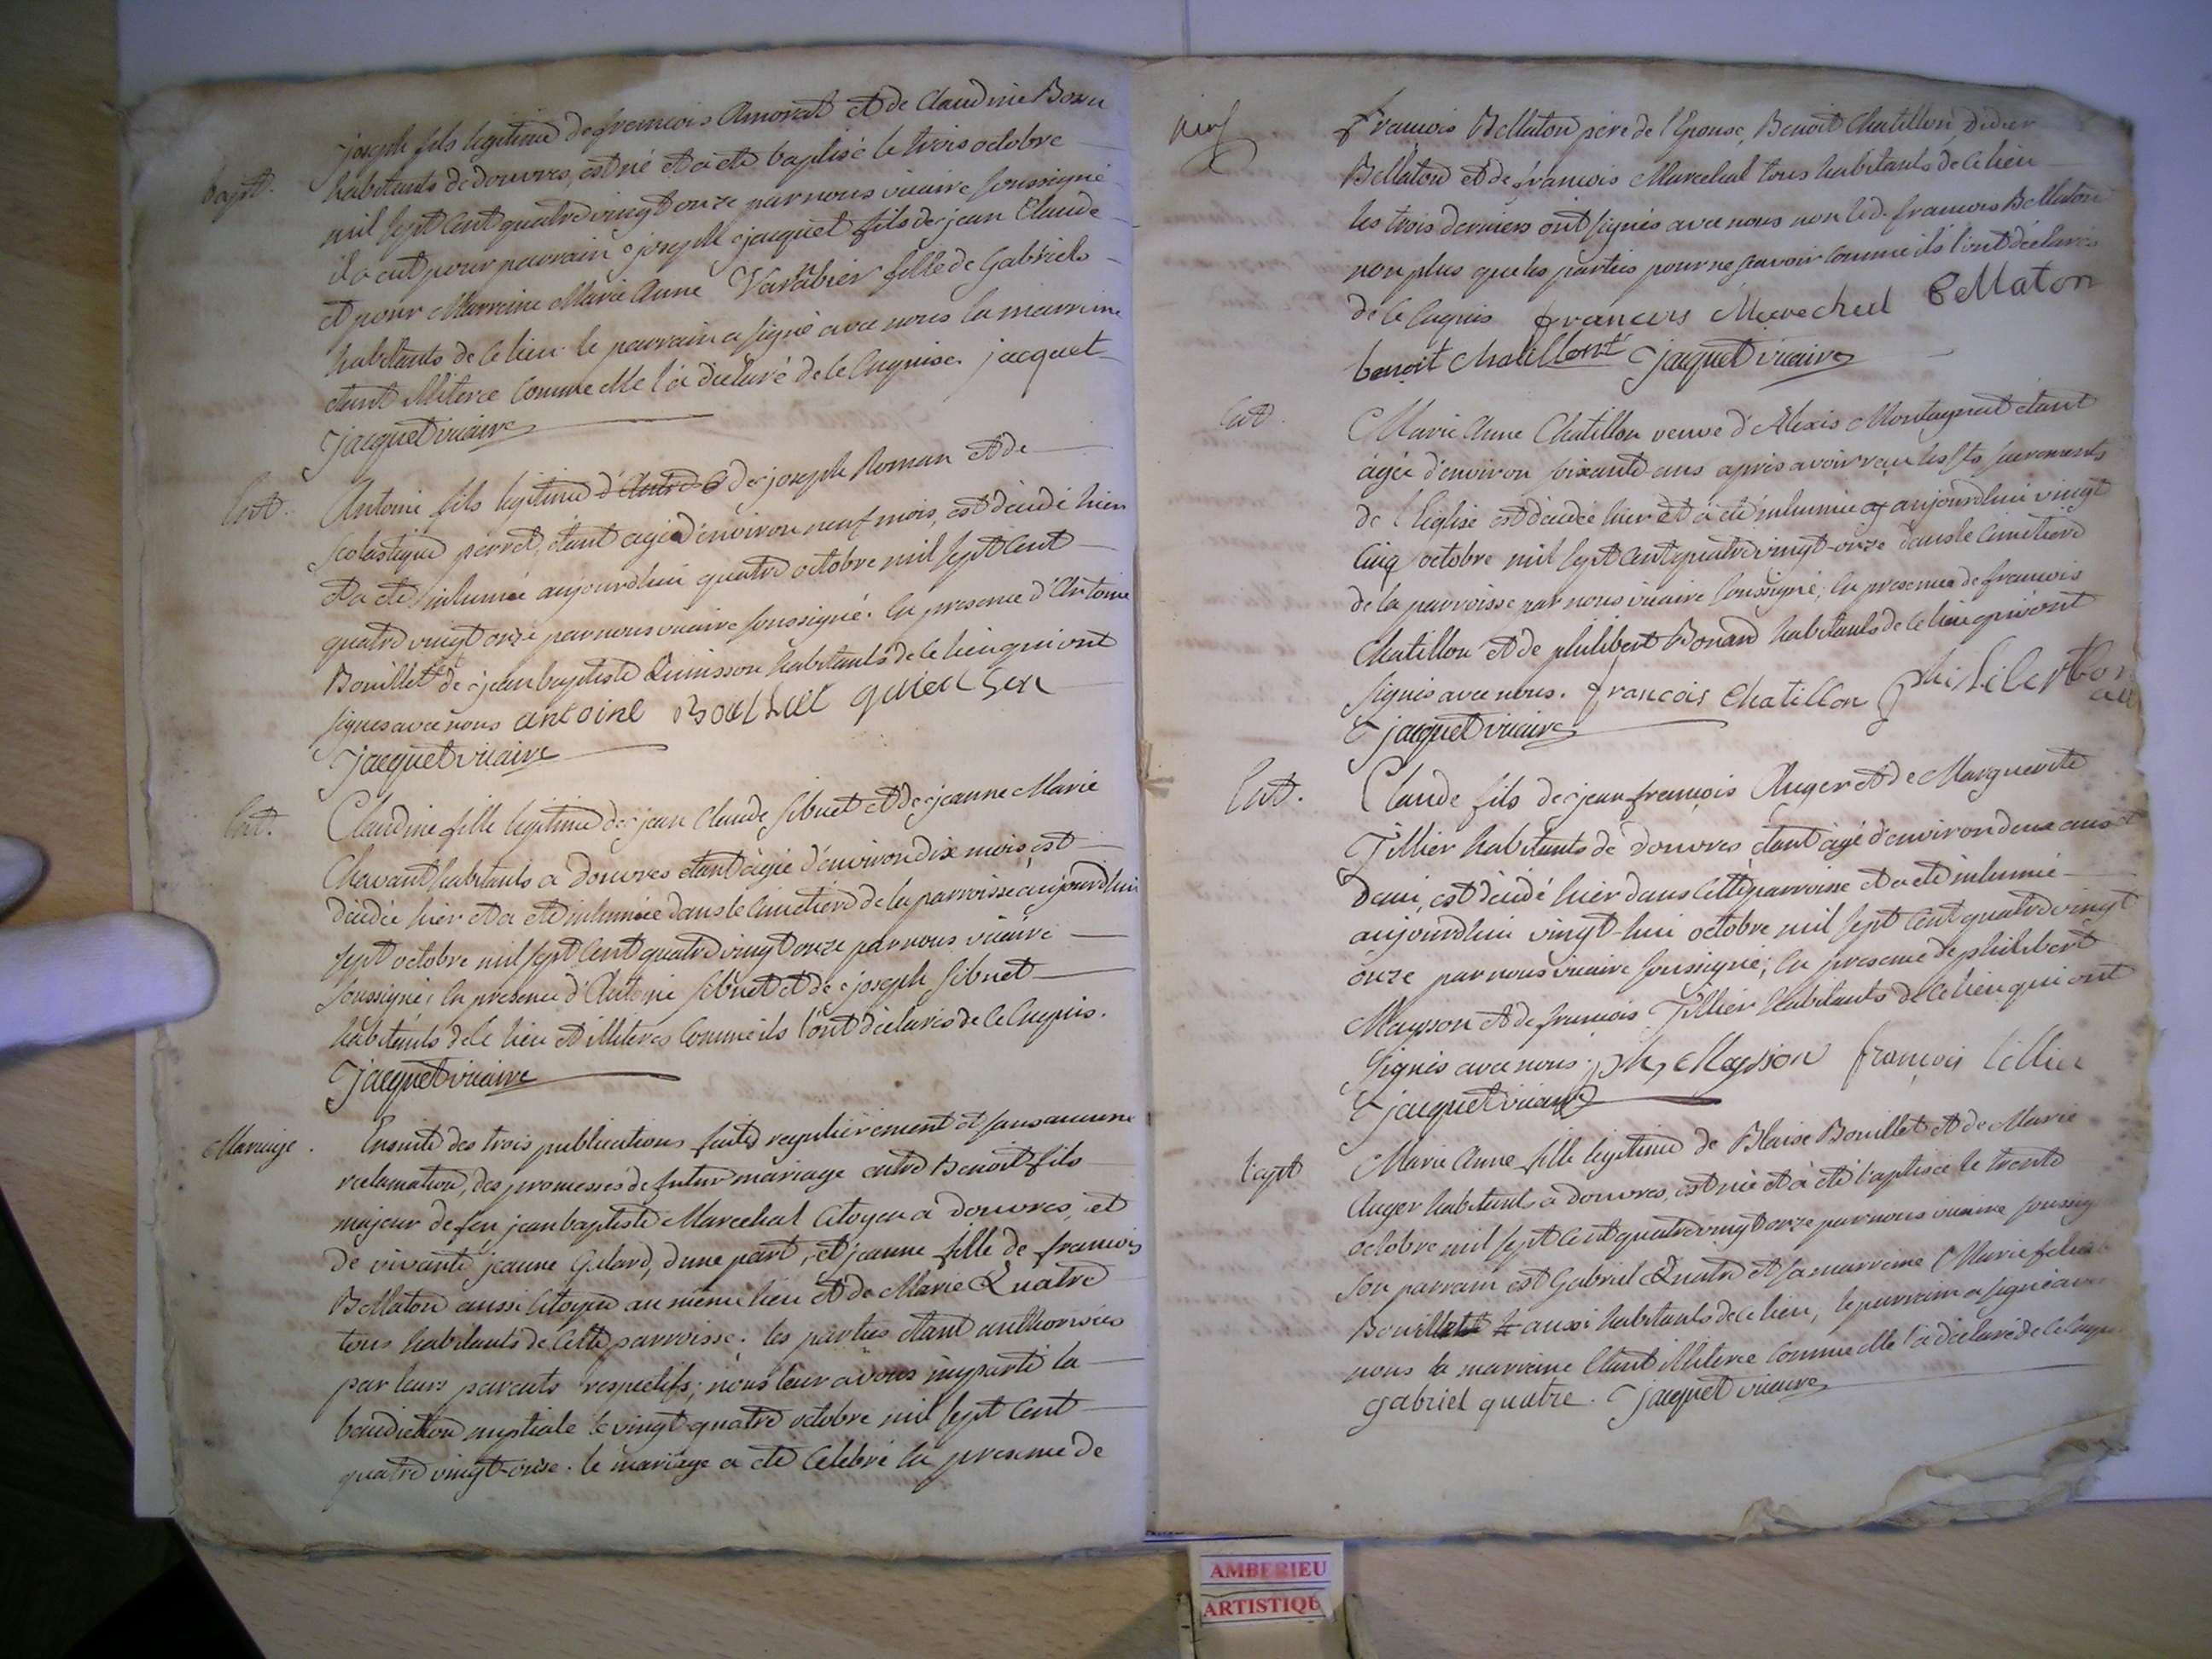 joseph fils legitime de francois Amorat et de Claudine Bozu
bapt.
habitants de douvres, est né et a été baptisé le trois octobre
mil sept cent quatre vingt onze par nous vicaire soussigné
il a eut pour parrain joseph jacquet fils de jean Claude
et pour Marraine Marie Anne Varambier fille de Gabriel
habitants de ce lieu le parrain a signé avec nous la marraine
étant illiterée comme elle l'a déclaré de ce enquise. jacquet
jacquet vicaire
Ent.
Antoine fils legitime de joseph Roman et de
scolastique perret, étant agé d'environ neuf mois, est décédé hier
et a été inhumé aujourdhui quatre octobre mil sept cent
quatre vingt onze par nous vicaire soussigné. en presence d'Antoine
Bouillet et de jean baptiste Quinsson habitants de ce lieu qui ont
signés avec nous antoine Bouillet quiensen
jacquet vicaire
Ent.
Claudine fille legitime de jean Claude sibuet et de jeanne Marie
Chavant habitants a douvres étant âgée d'environ dix mois, est
décédée hier et a été inhumée dans le cimetiere de la parroisse aujourdhui
sept octobre mil sept cent quatre vingt onze par nous vicaire
soussigné; en presence d'Antoine sibuet et de joseph sibuet
habitants de ce lieu et illiterés comme ils l'ont déclarés de ce enquis.
jacquet vicaire
Mariage.
Ensuite des trois publications faites regulièrement et sans aucune
reclamation, des promesses de futur mariage entre Benoit fils
majeur de feu jean baptiste Marechal Citoyen a douvres, et
de vivante jeanne Gelard, d'une part, et jeanne fille de francois
Bellaton aussi Citoyen au même lieu et de Marie Quatre
tous habitants de cette parroisse; les parties étant authorisées
par leurs parents respectifs; nous leur avons imparti la
benediction nuptiale le vingt-quatre octobre mil sept cent
quatre vingt-onze. le mariage a été célébré en presence de
francois Bellaton père de l'Epouse, Benoit Chatillon Didier
Bellaton et de francois Marechal tous habitants de ce lieu
les trois derniers ont signés avec nous non led. francois Bellaton
non plus que les parties pour ne savoir comme ils l'ont déclarés
de ce enquis francois Marechal Bellaton
benoit chatillont jacquet vicaire
Ent.
Marie Anne Chatillon veuve d'Alexis Montagnat étant
âgée d'environ soixante ans après avoir reçu les sts sacrements
de l'Eglise est décédée hier et a été inhumée aujourdhui vingt
cinq octobre mil sept cent quatre vingt-onze dans le cimetiere
de la parroisse par nous vicaire soussigné; en presence de francois
Chatillon et de philibert Bonard habitants de ce lieu qui ont
signés avec nous. francois Chatillon philibert Bon
jacquet vicaire
Ent.
Claude fils de jean françois Auger et de Marguerite
Tillier habitants de douvres étant agé d'environ deux ans et
demi, est décédé hier dans cette parroisse et a été inhumé
aujourdhui vingt-hui octobre mil sept cent quatre vingt
onze par nous vicaire soussigné; en presence de philibert
Maysson et de francois Tillier habitants de ce lieu qui ont
signés avec nous. ph, Maysson françois tillier
jacquet vicaire
bapt
Marie Anne fille legitime de Blaise Bouillet et de Marie
Auger habitants a douvres, est née et a été baptisée le trente
octobre mil sept cent quatre vingt onze par nous vicaire soussig
son parrain est Gabriel Quatre et sa marraine Marie
Bouillet aussi habitants de ce lieu, le parrain a signé avec
nous la marraine étant illiterée comme elle l'a déclaré de ce enqu
gabriel quatre. jacquet vicaire
AMBERIEU
ARTISTIQUE